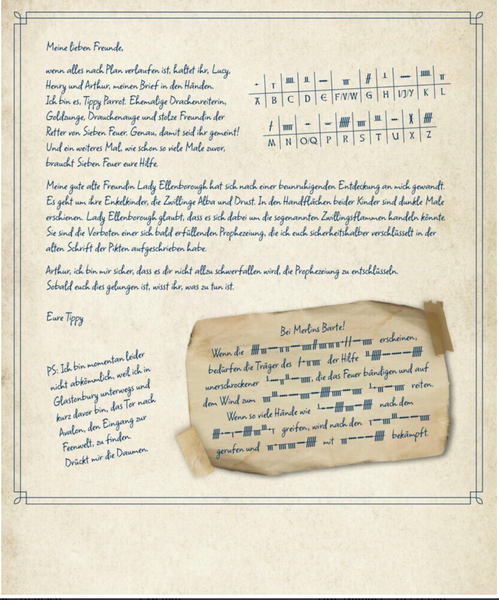 Meine lieben Freunde,
wenn alles nach Plan verlaufen ist, haltet ihr, Lucy,
Henry und Arthur, meinen Brief in den Händen.
Ich bin es, Tippy Parrot. Ehemalige Drachenreiterin,
Goldzunge, Drachenauge und stolze Freundin der
Retter von Sieben Feuer. Genau, damit seid ihr gemeint!
Und ein weiteres Mal, wie schon so viele Male zuvor,
braucht Sieben Feuer eure Hilfe.
A B C D E F/V/W G H I/J/Y K L
M N O,Q P R S T U X Z
Meine gute alte Freundin Lady Ellenborough hat sich nach einer beunruhigenden Entdeckung an mich gewandt.
Es geht um ihre Enkelkinder, die Zwillinge Alba und Drust. In den Handflächen beider Kinder sind dunkle Male
erschienen. Lady Ellenborough glaubt, dass es sich dabei um die sogenannten Zwillingsflammen handeln könnte.
Sie sind die Vorboten einer sich bald erfüllenden Prophezeiung, die ich euch sicherheitshalber verschlüsselt in der
alten Schrift der Pikten aufgeschrieben habe.
Arthur, ich bin mir sicher, dass es dir nicht allzu schwerfallen wird, die Prophezeiung zu entschlüsseln.
Sobald euch dies gelungen ist, wisst ihr, was zu tun ist.
Eure Tippy
PS: Ich bin momentan leider
nicht abkömmlich, weil ich in
Glastonbury unterwegs und
kurz davor bin, das Tor nach
Avalon, den Eingang zur
Feenwelt, zu finden.
Drückt mir die Daumen.
Bei Merlins Barte!
Wenn die erscheinen,
bedürfen die Träger des der Hilfe
unerschrockener , die das Feuer bändigen und auf
dem Wind zum reiten.
Wenn so viele Hände wie nach dem
greifen, wird nach den
gerufen und mit bekämpft.